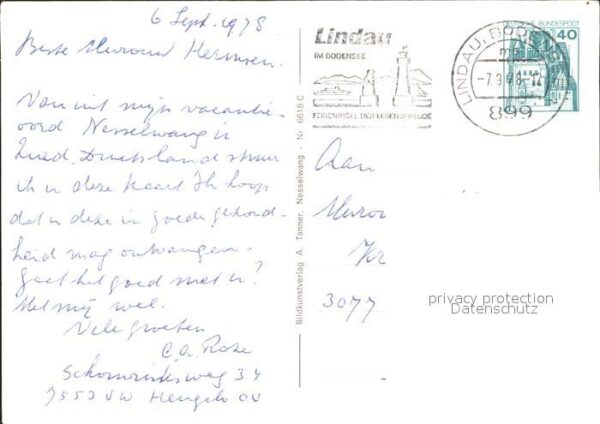 6 Sept. 1978
Beste Mevrouw Hermsen.
Van uit mijn vacantie-
oord Nesselwang in
Zuid Duitsland stuur
ik u deze kaart. Ik hoop
dat u deze in goede gezond-
heid mag ontvangen.
Gaat het goed met u?
Met mij wel.
Vele groeten
C.A. Rose
34
7553 VW Hengelo OV
Bildkunstverlag A. Tanner, Nesselwang - Nr. 6618 C
Lindau
IM BODENSEE
FERIENINSEL DER LEBENSFREUDE
LINDAU, BODENSEE
899
BUNDESPOST
40
Aan
Mevro
3077
privacy protection
Datenschutz